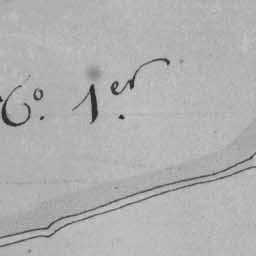 Co. 1.er